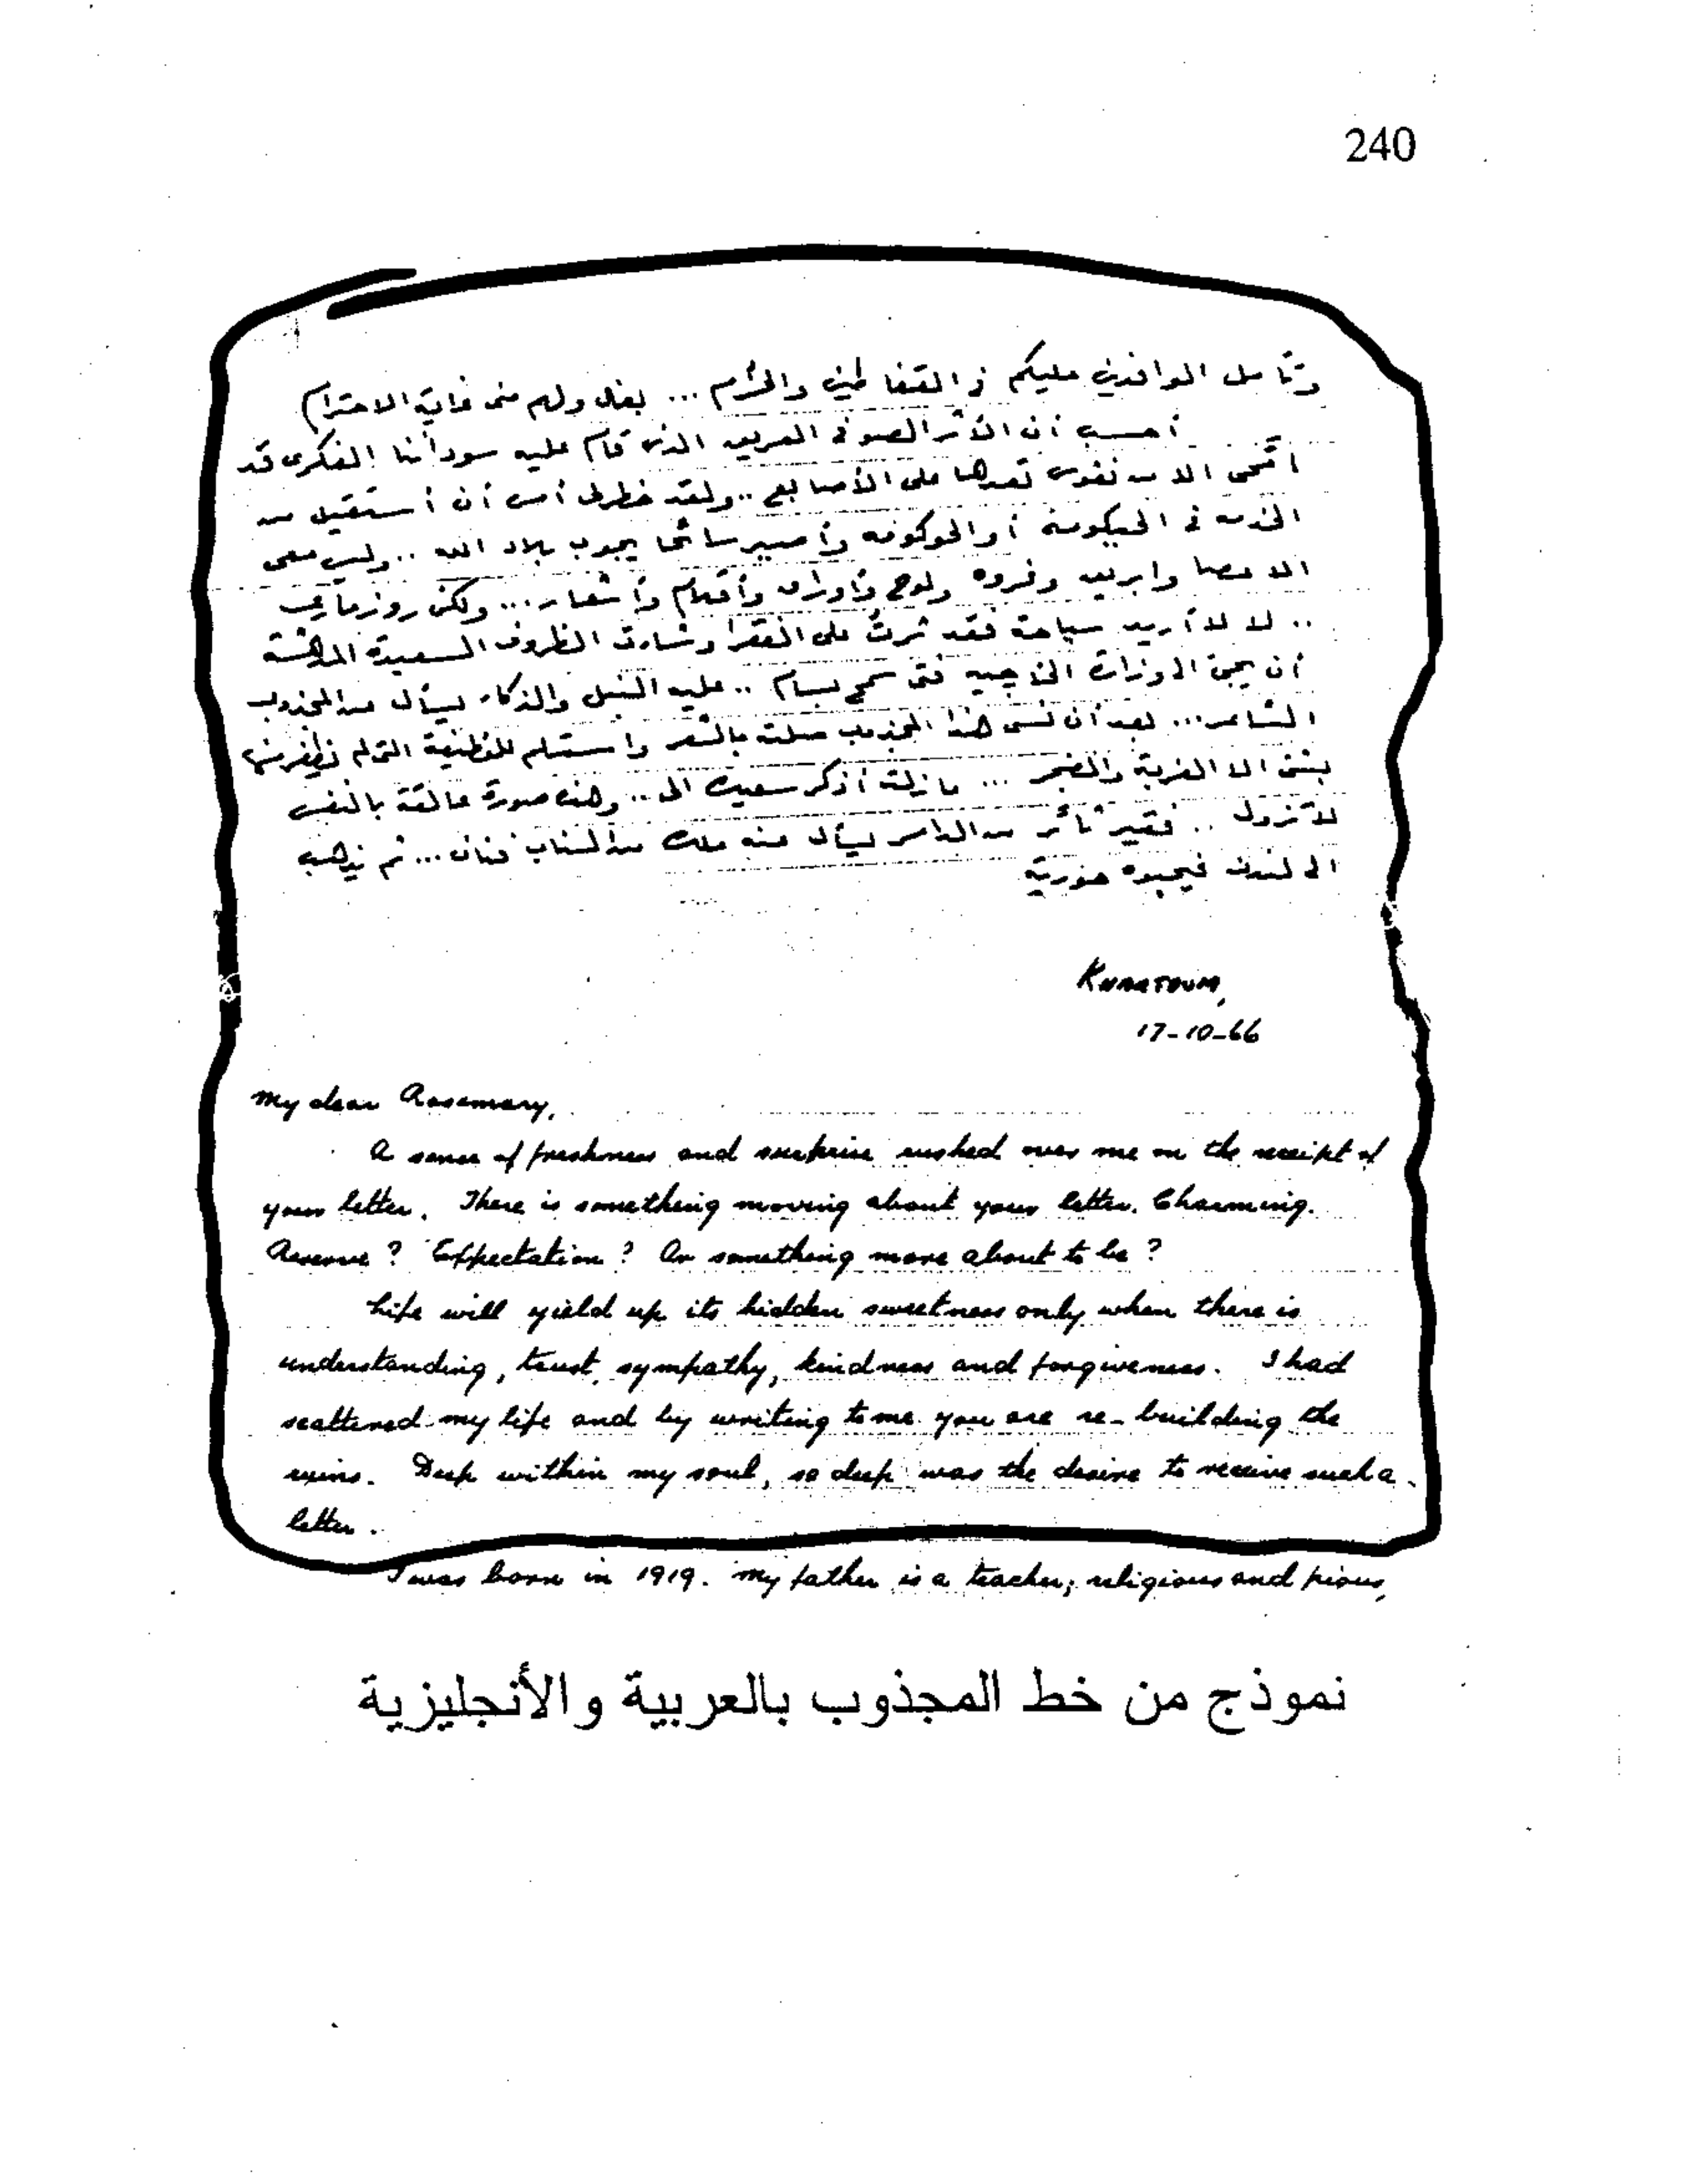 240
وتأمل الوافدين عليكم في القفاطين والحُزُم ... بغال ولهم منى غاية الاحترام
أحسب أن الأثر الصوفى العريق الذى قام عليه سوداننا الفكرى قد
اتمحى الا من نفوس تعدها على الأصابع .. ولقد خطر لى أمس أن أستقيل من
الخدمة فى الحكومة أو الحوكومه وأصير سائحا يجوب بلاد الله .. وليس معى
الا عصا وابريق وفروه ولوح وأوراق وأقلام وأشعار ... ولكن
.. لا لا أريد سياحة فقد ثرتُ على الفقر وشاءت الظروف السعيدة المدهشة
أن يجئ الى وزارة الخارجيه فتى سمح بسام .. عليه النبل والذكاء يسأل عن المجذوب
الشاعر ... بعد أن نسى هذا المجذوب صلته بالشعر واستسلم للقطيعة التى لم
بشئ الا الغربة والضجر ... مازلت أذكر سعيك الى .. وهذه صورة عالقة بالنفس
لا تزول .. فقير ثائر من الدامر يسأل عنه ملك من السناب فنان ... ثم يذهب
الى لندن فيجيبوه حورية
KHARTOUM,
17-10-66
My dear Rosemary,
A sense of freshness and surprise rushed over me on the receipt of
your letter. There is something moving about your letter. Charming.
Reserve? Expectation? Or something more about to be?
Life will yield up its hidden sweetness only when there is
understanding, trust, sympathy, kindness and forgiveness. I had
scattered my life and by writing to me you are re-building the
ruins. Deep within my soul, so deep was the desire to receive such a
letter.
I was born in 1919. My father is a teacher; religious and pious,
نموذج من خط المجذوب بالعربية والأنجليزية